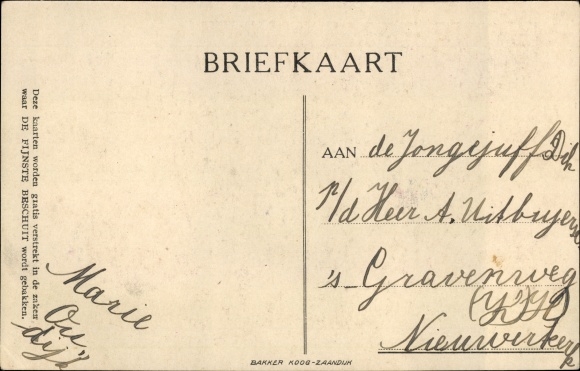 BRIEFKAART
Deze kaarten worden gratis verstrekt in de zaken
waar DE FIJNSTE BESCHUIT wordt gebakken.
Marie
Ou
dijk
AAN de Jongejuff Dik
p/d Heer A. Uitbuyerse
's Gravenweg
Nieuwerkerk
BAKKER KOOG-ZAANDIJK